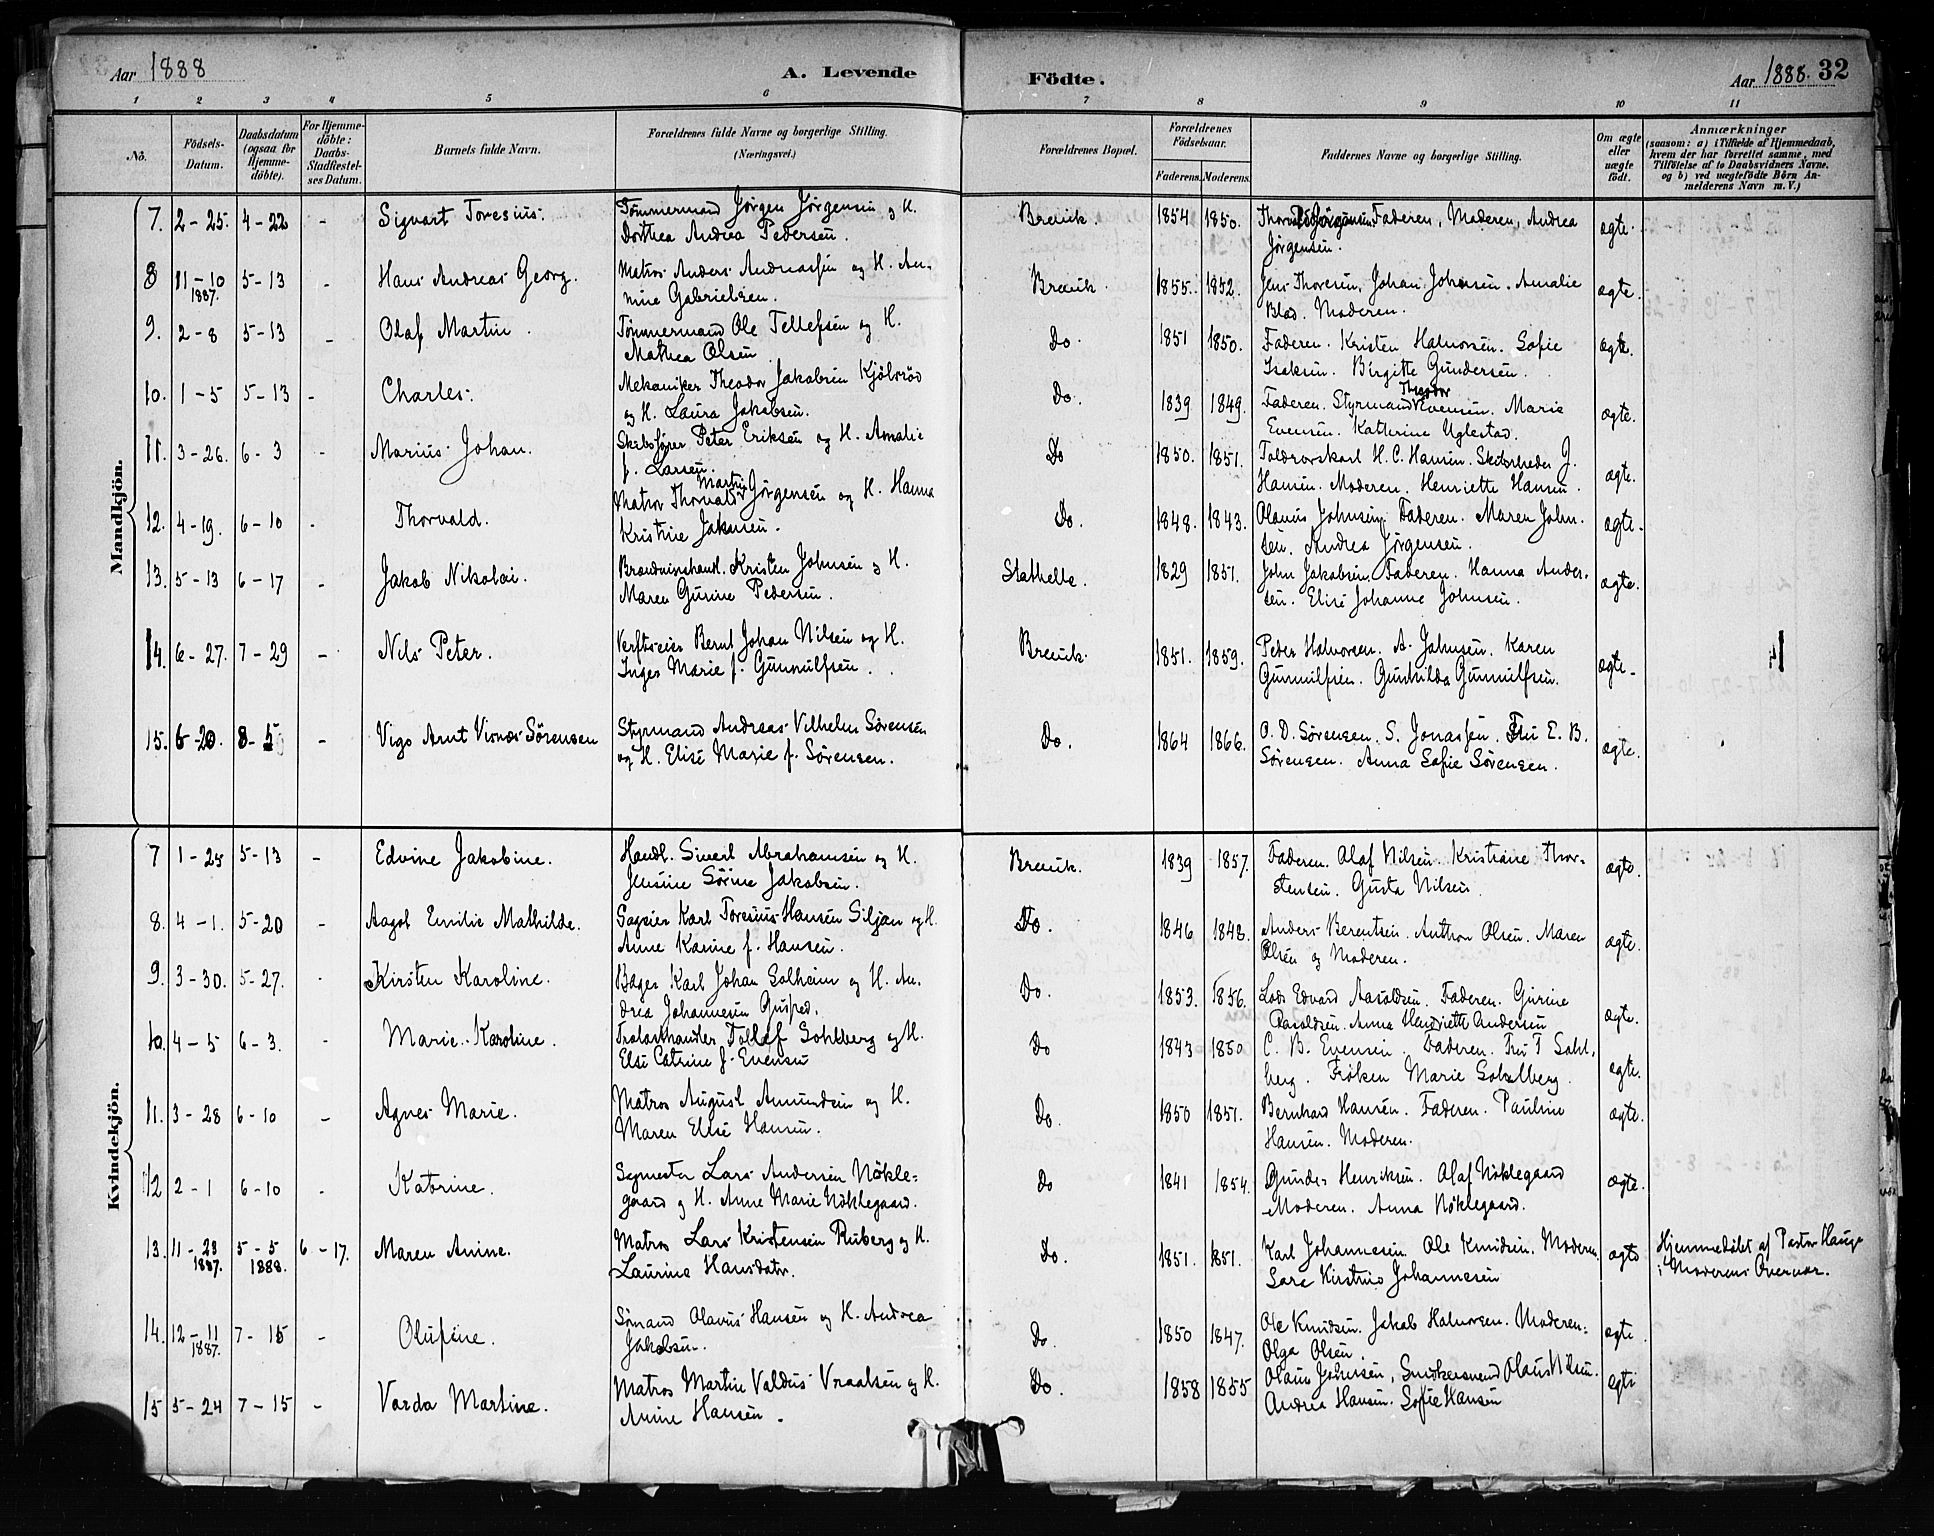 Aar 1888
A. Levende Födte.
Aar 1888. 32
1 2 3 4 5 6 7 8 9 10 11
No.
Födsels-Datum.
Daabsdatum (ogsaa for Hjemme-döbte).
For Hjemme-döbte: Daabs-Stadfestel-ses Datum.
Barnets fulde Navn.
Forældrenes fulde Navne og borgerlige Stilling. (Næringsvei.)
Forældrenes Bopæl.
Forældrenes Födselsaar.
Faderens. Moderens.
Faddernes Navne og borgerlige Stilling.
Om ægte eller uægte födt.
Anmærkninger (saasom: a) i Tilfælde af Hjemmedaab, hvem der har forrettet samme, med Tilföielse af to Daabsvidners Navne. og b) ved uægtefödte Börn An-melderens Navn m. V.)
Mandkjön.
7. 2-25. 4-22 - Sigvart Toresius. Tömmermand Jörgen Jörgensen og H. Brevik 1854 1850. Jörgensen. Faderen, Moderen, Andrea ægte.
Dorthea Andrea Pedersen. Jörgensen.
8 11-10 1887. 5-13 - Hans Andreas Georg. Matros Anders Andreassen og H. An- Brevik. 1855. 1852. Jens Thoresen, Johan Johnsen. Amalie ægte.
nine Gabrielsen. Blad. Moderen.
9. 2-8 5-13 - Olaf Martin. Tömmermand Ole Tellefsen og H. Do. 1851 1850. Faderen. Kristen Halvorsen. Sofie ægte.
Mathea Olsen Isaksen. Birgitte Gundersen.
10. 1-5 5-13 - Charles. Mekaniker Theodor Jakobsen Kjölsröd Do. 1839 1849. Faderen. Styrmand Theodor Evensen. Marie ægte.
og H. Laura Jakobsen. Evensen. Katherine Uglestad.
11. 3-26. 6-3 - Marius Johan. Skibsförer Peter Eriksen og H. Amalie Do 1850. 1851. Toldrorskarl H. C. Hansen. Skibsrheder J. ægte.
f. Larsen. Hansen. Moderen. Henriette Hansen.
12. 4-19. 6-10 - Thorvald. Matros Thorvald Martin Jörgensen og H. Hanna Do. 1848. 1843. Olavus Johnsen. Faderen. Maren John- ægte.
Kristine Johnsen. sen. Andrea Jörgensen.
13. 5-13 6-17 - Jakob Nikolai. Brændevinshandl. Kristen Johnsen og H. Stathelle. 1829 1851. John Jakobsen. Faderen. Hanna Ander- ægte.
Maren Gurine Pedersen. sen. Elise Johanne Johnsen.
14. 6-27. 7-29 - Nils Peter. Verftseier Bernt Johan Nilsen og H. Brevik. 1851. 1859. Peter Halvorsen. A. Johnsen. Karen ægte.
Inger Marie f. Gunnulfsen. Gunnulfsen. Gunhilda Gunnulfsen.
15. 6-20. 8-5 - Vigo Arnt Sörensen Styrmand Andreas Vilhelm Sörensen Do. 1864 1866. O. D. Sörensen. S. Jonassen. Fru E. B. ægte.
og H. Elise Marie f. Sörensen. Sörensen. Anna Sofie Sörensen.
Kvindekjön.
7 1-25 5-13 - Edvine Jakobine. Handl. Sivert Abrahamsen og H. Brevik. 1839 1857. Faderen. Olaf Nilsen. Kristiane Thor- ægte.
Jensine Sörine Jakobsen. stensen. Gusta Nilsen.
8. 4-1. 5-20 - Aagot Emilie Mathilde. Sageier Karl Toresius Hansen Siljan og H. Do. 1846 1848. Anders Berentsen. Anthon Olsen. Maren ægte.
Anne Karine f. Hansen. Olsen og Moderen.
9. 3-30. 5-27. - Kirsten Karoline. Bager Karl Johan Solheim og H. An- Do. 1853. 1856. Lods Edvard Aasoldsen. Faderen. Gurine ægte.
drea Johannesen Anna Henriette Andersen
10. 4-5 6-3. - Marie Karoline. Tollef Sohlberg og H. Do 1843 1850 C. B. Evensen. Faderen. Fru T Sohl- ægte.
Else Catrine f. Evensen berg. Fröken Marie Sohlberg.
11. 3-28 6-10 - Agnes Marie. Matros August Amundsen og H. Do. 1850 1851. Bernhard Hansen. Faderen. Pauline ægte.
Maren Elise Hansen. Hansen. Moderen.
12 2-1 6-10 - Katrine. Sagmester Lars Andersen Nökle- Do 1841 1854. Gunder Henriksen. Olaf Nöklegaard ægte.
gaard og H. Anne Marie Nöklegaard. Moderen. Anna Nöklegaard.
13. 11-23 1887. 5-5 1888. 6-17. Maren Anine. Matros Lars Kristensen Ruberg og H. Do. 1851. 1851. Karl Johannesen. Ole Knudsen. Moderen. ægte Hjemmedöbt af Pastor Hauge
Laurine Hansdatr. Sara Kirstine Johannesen i Moderens Overvær.
14. 12-11 1887. 7-15 - Olufine. Sömand Olavus Hansen og H. Andrea Do. 1850 1847. Ole Knudsen. Jakob Halvorsen. Moderen. ægte
Jakobsen. Olga Olsen.
15 5-24 7-15 - Varda Martine. Matros Martin Valdus Vraalsen og H. Do. 1858 1855 Olaus Johnsen, Snedkersvend Olaus Nilsen. ægte
Anine Hansen. Andrea Hansen. Sofie Hansen